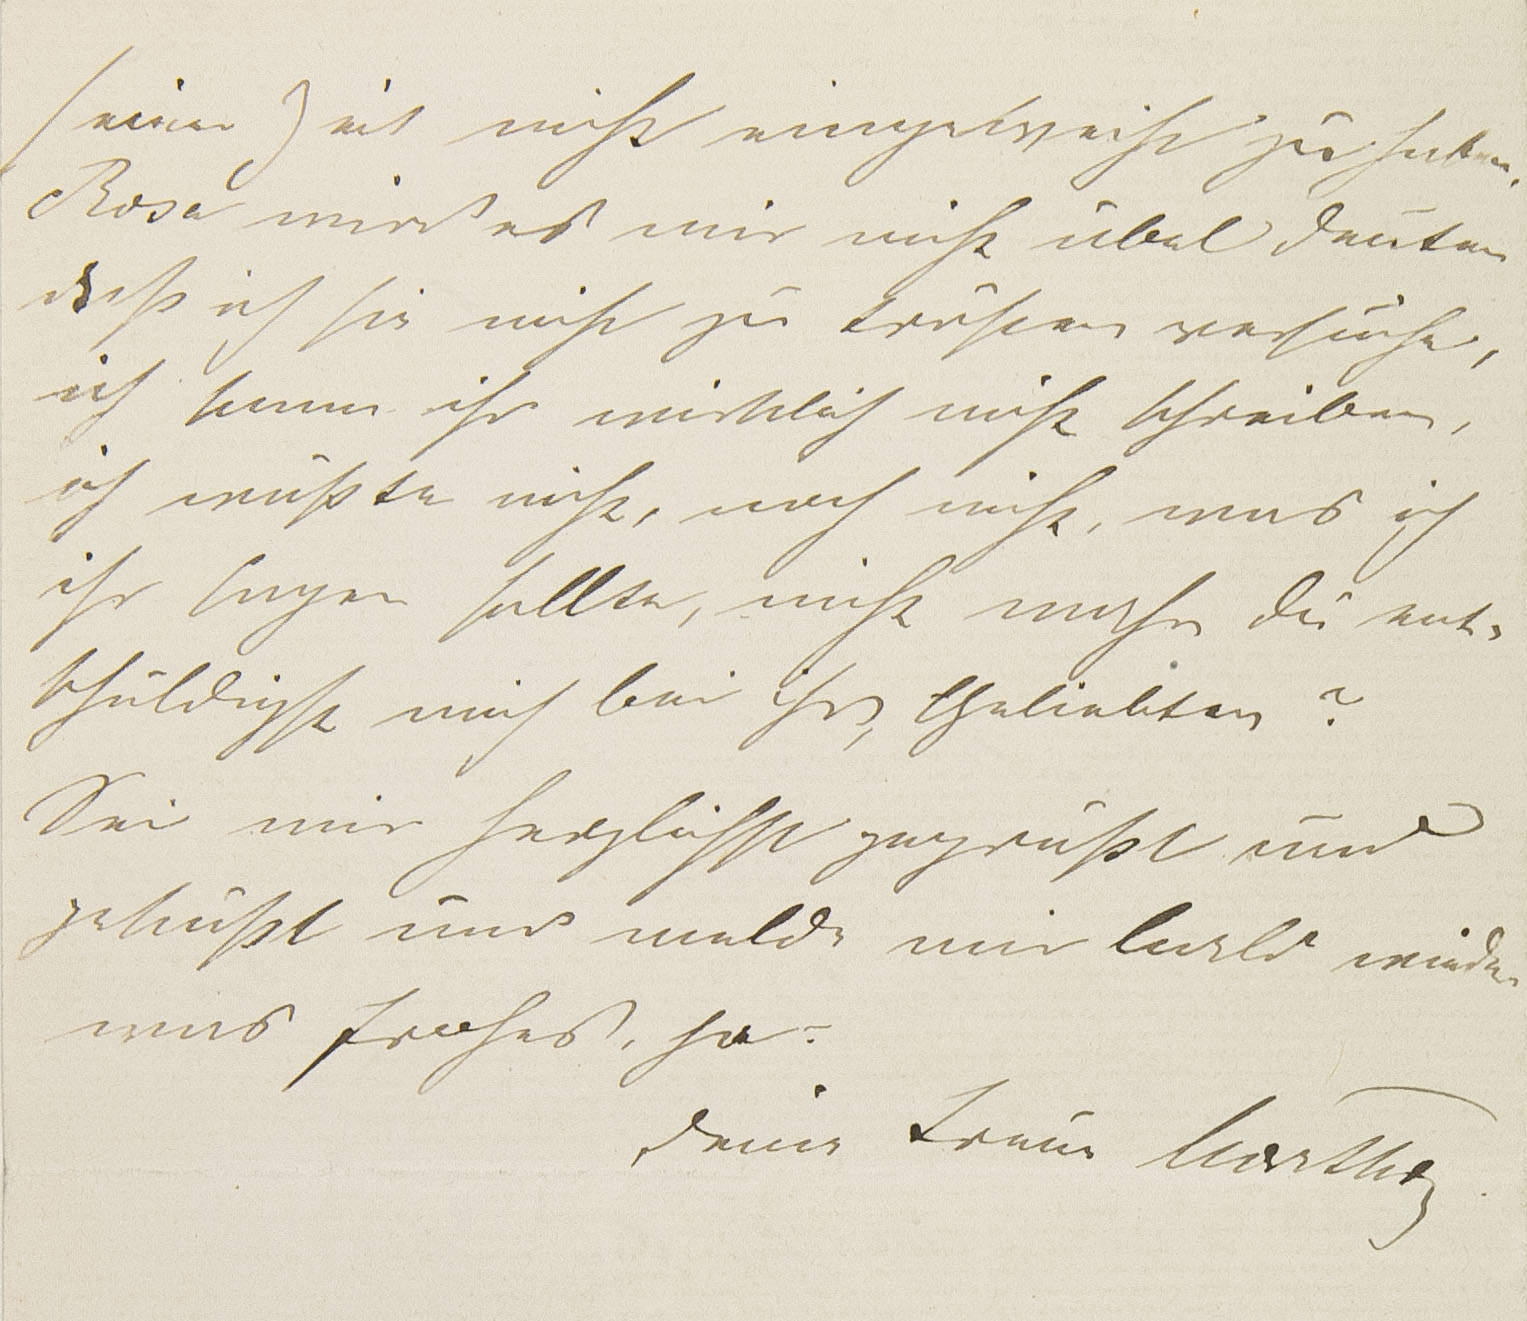 seiner Zeit nicht eingeweiht zu haben.
Rosa wird es mir nicht übel deuten
daß ich sie nicht zu trösten versuche,
ich kann ihr wirklich nicht schreiben,
ich wüßte nicht, noch nicht, was ich
ihr sagen sollte, nicht wahr du ent-
schuldigst mich bei ihr, Geliebter?
Sei mir herzlichst gegrüßt und
geküßt und melde mir bald wieder
was frohes, ja?
Deine treue Martha